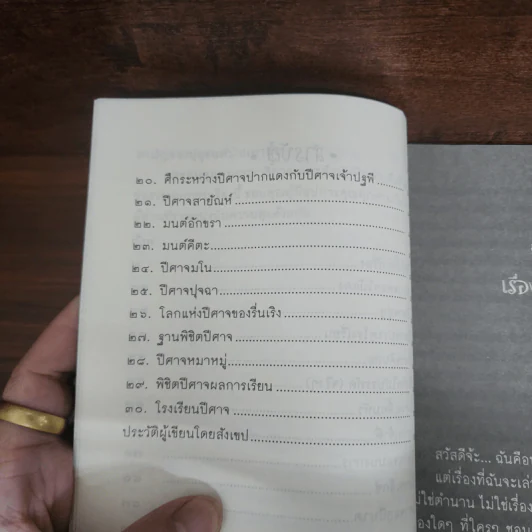 ๒๐. ศึกระหว่างปีศาจปากแดงกับปีศาจเจ้าปฐพี
๒๑. ปีศาจสายัณห์
๒๒. มนต์อักขรา
๒๓. มนต์คีตะ
๒๔. ปีศาจมโน
๒๕. ปีศาจปุจฉา
๒๖. โลกแห่งปีศาจของรื่นเริง
๒๗. ฐานพิชิตปีศาจ
๒๘. ปีศาจหมาหมู่
๒๙. พิชิตปีศาจผลการเรียน
๓๐. โรงเรียนปีศาจ
ประวัติผู้เขียนโดยสังเขป
สวัสดีจ้ะ... ฉันคือ
แต่เรื่องที่ฉันจะเล่า
ไม่ใช่ตำนาน ไม่ใช่เรื่อง